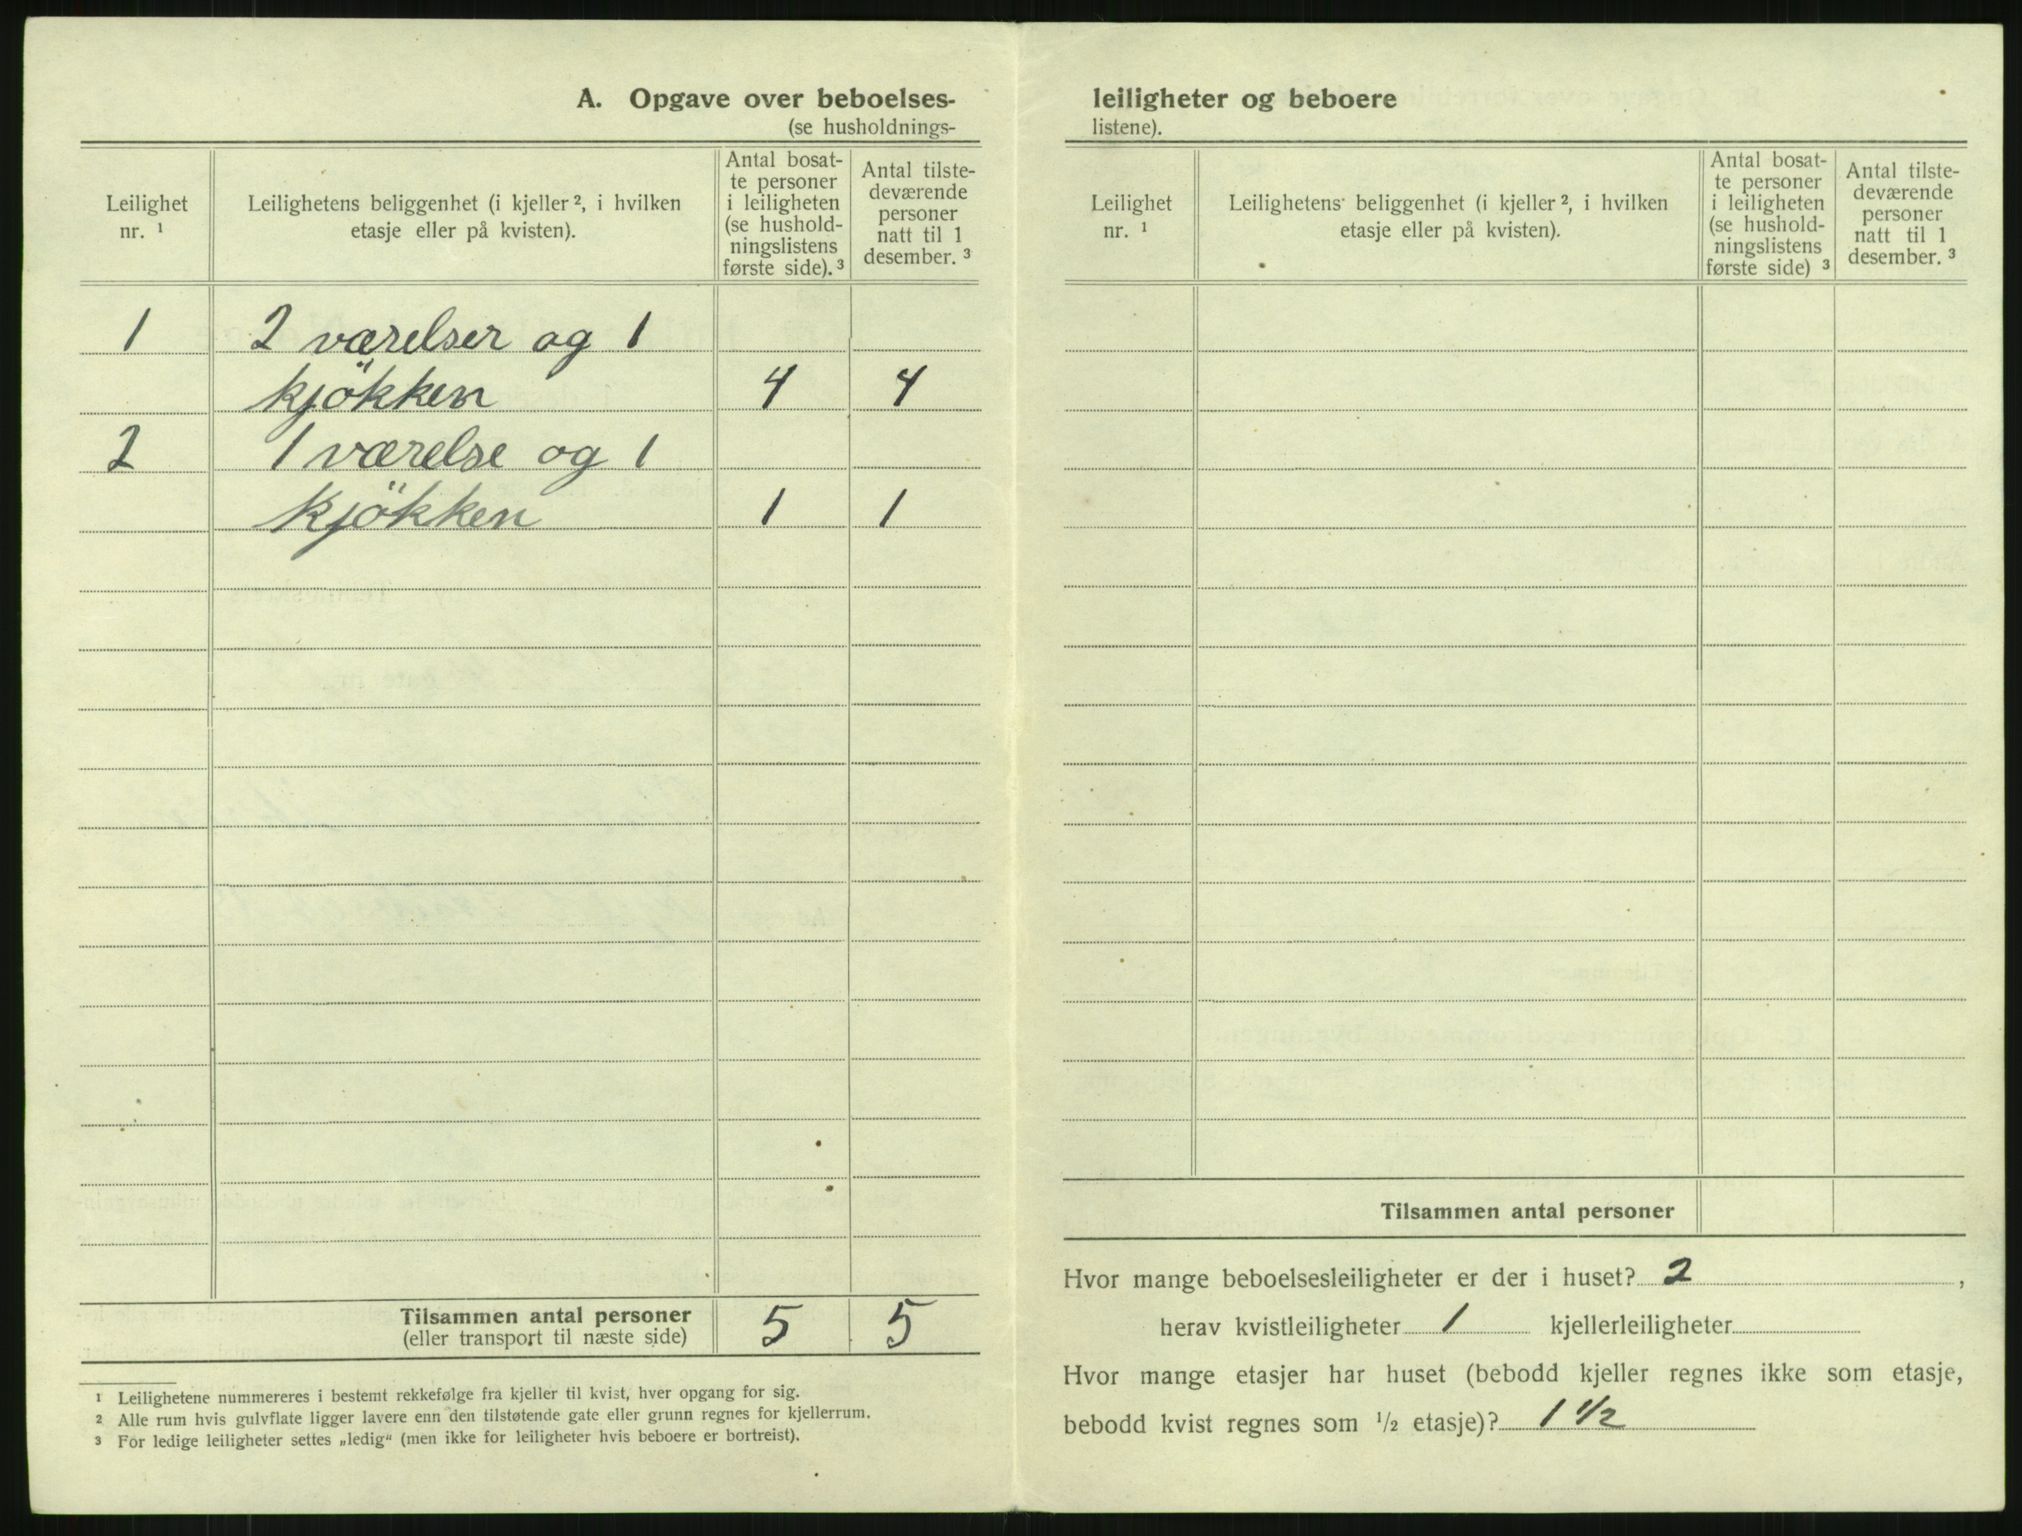 A. Opgave over beboelses-
(se husholdnings-
Leilighet
nr. ¹
Leilighetens beliggenhet (i kjeller ², i hvilken
etasje eller på kvisten).
Antal bosat-
te personer
i leiligheten
(se hushold-
ningslistens
første side). ³
Antal tilste-
deværende
personer
natt til 1
desember. ³
1 2 værelser og 1
kjökken 4 4
2 1 værelse og 1
kjökken 1 1
Tilsammen antal personer
(eller transport til næste side)
5 5
¹ Leilighetene nummereres i bestemt rekkefølge fra kjeller til kvist, hver opgang for sig.
² Alle rum hvis gulvflate ligger lavere enn den tilstøtende gate eller grunn regnes for kjellerrum.
³ For ledige leiligheter settes „ledig“ (men ikke for leiligheter hvis beboere er bortreist).
leiligheter og beboere
listene).
Leilighet
nr. ¹
Leilighetens beliggenhet (i kjeller ², i hvilken
etasje eller på kvisten).
Antal bosat-
te personer
i leiligheten
(se hushold-
ningslistens
første side) ³
Antal tilste-
deværende
personer
natt til 1
desember. ³
Tilsammen antal personer
Hvor mange beboelsesleiligheter er der i huset? 2,
herav kvistleiligheter 1 kjellerleiligheter
Hvor mange etasjer har huset (bebodd kjeller regnes ikke som etasje,
bebodd kvist regnes som ½ etasje)? 1 ½